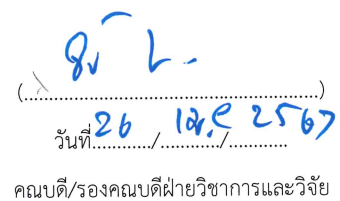 (........................................................)
วันที่ 26 / เม.ย / 2567
คณบดี/รองคณบดีฝ่ายวิชาการและวิจัย